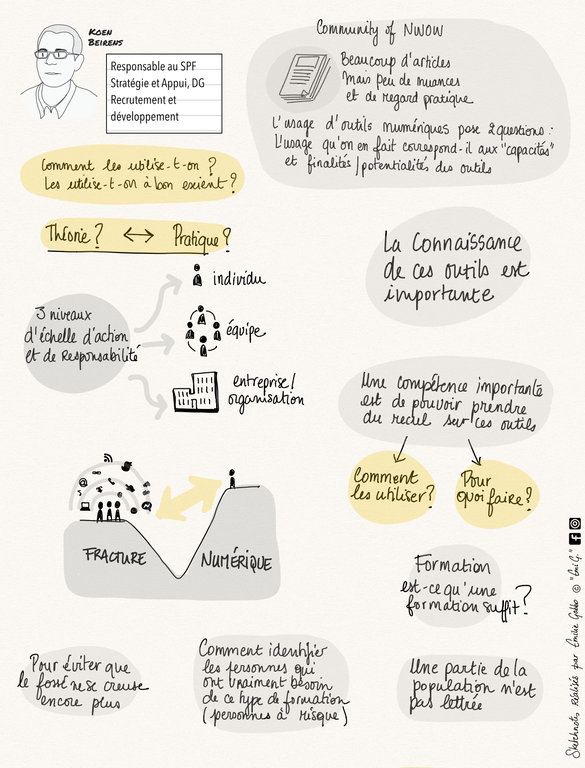 KOEN
BEIRENS
Responsable au SPF
Stratégie et Appui, DG
Recrutement et
développement
Community of NWOW
Beaucoup d'articles
Mais peu de nuances
et de regard pratique
L'usage d'outils numériques pose 2 questions :
L'usage qu'on en fait correspond-il aux "capacités"
et finalités/potentialités des outils
Comment les utilise-t-on ?
Les utilise-t-on à bon escient ?
Théorie ? ↔ Pratique ?
La Connaissance
de ces outils est
importante
3 niveaux
d'échelle d'action
et de Responsabilité
individu
équipe
entreprise/
organisation
Une compétence importante
est de pouvoir prendre
du recul sur ces outils
Comment
les utiliser ?
Pour
quoi faire ?
FRACTURE NUMÉRIQUE
Formation
est-ce qu'une
formation suffit ?
Pour éviter que
le fossé ne se creuse
encore plus
Comment identifier
les personnes qui
ont vraiment besoin
de ce type de formation
(personnes à risque)
Une partie de la
population n'est
pas lettrée
Sketchnotes réalisés par Emilie Gobbo © "Emi G."